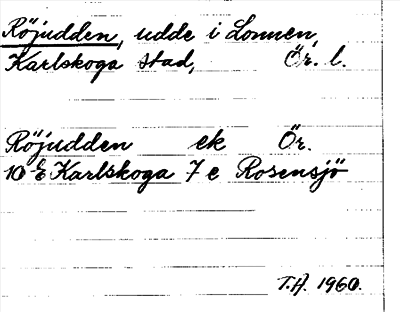 Röjudden, udde i Lonnen,
Karlskoga stad, Ör. l.
Röjudden ek Ör.
10 E Karlskoga 7 e Rosensjö
T.H. 1960.